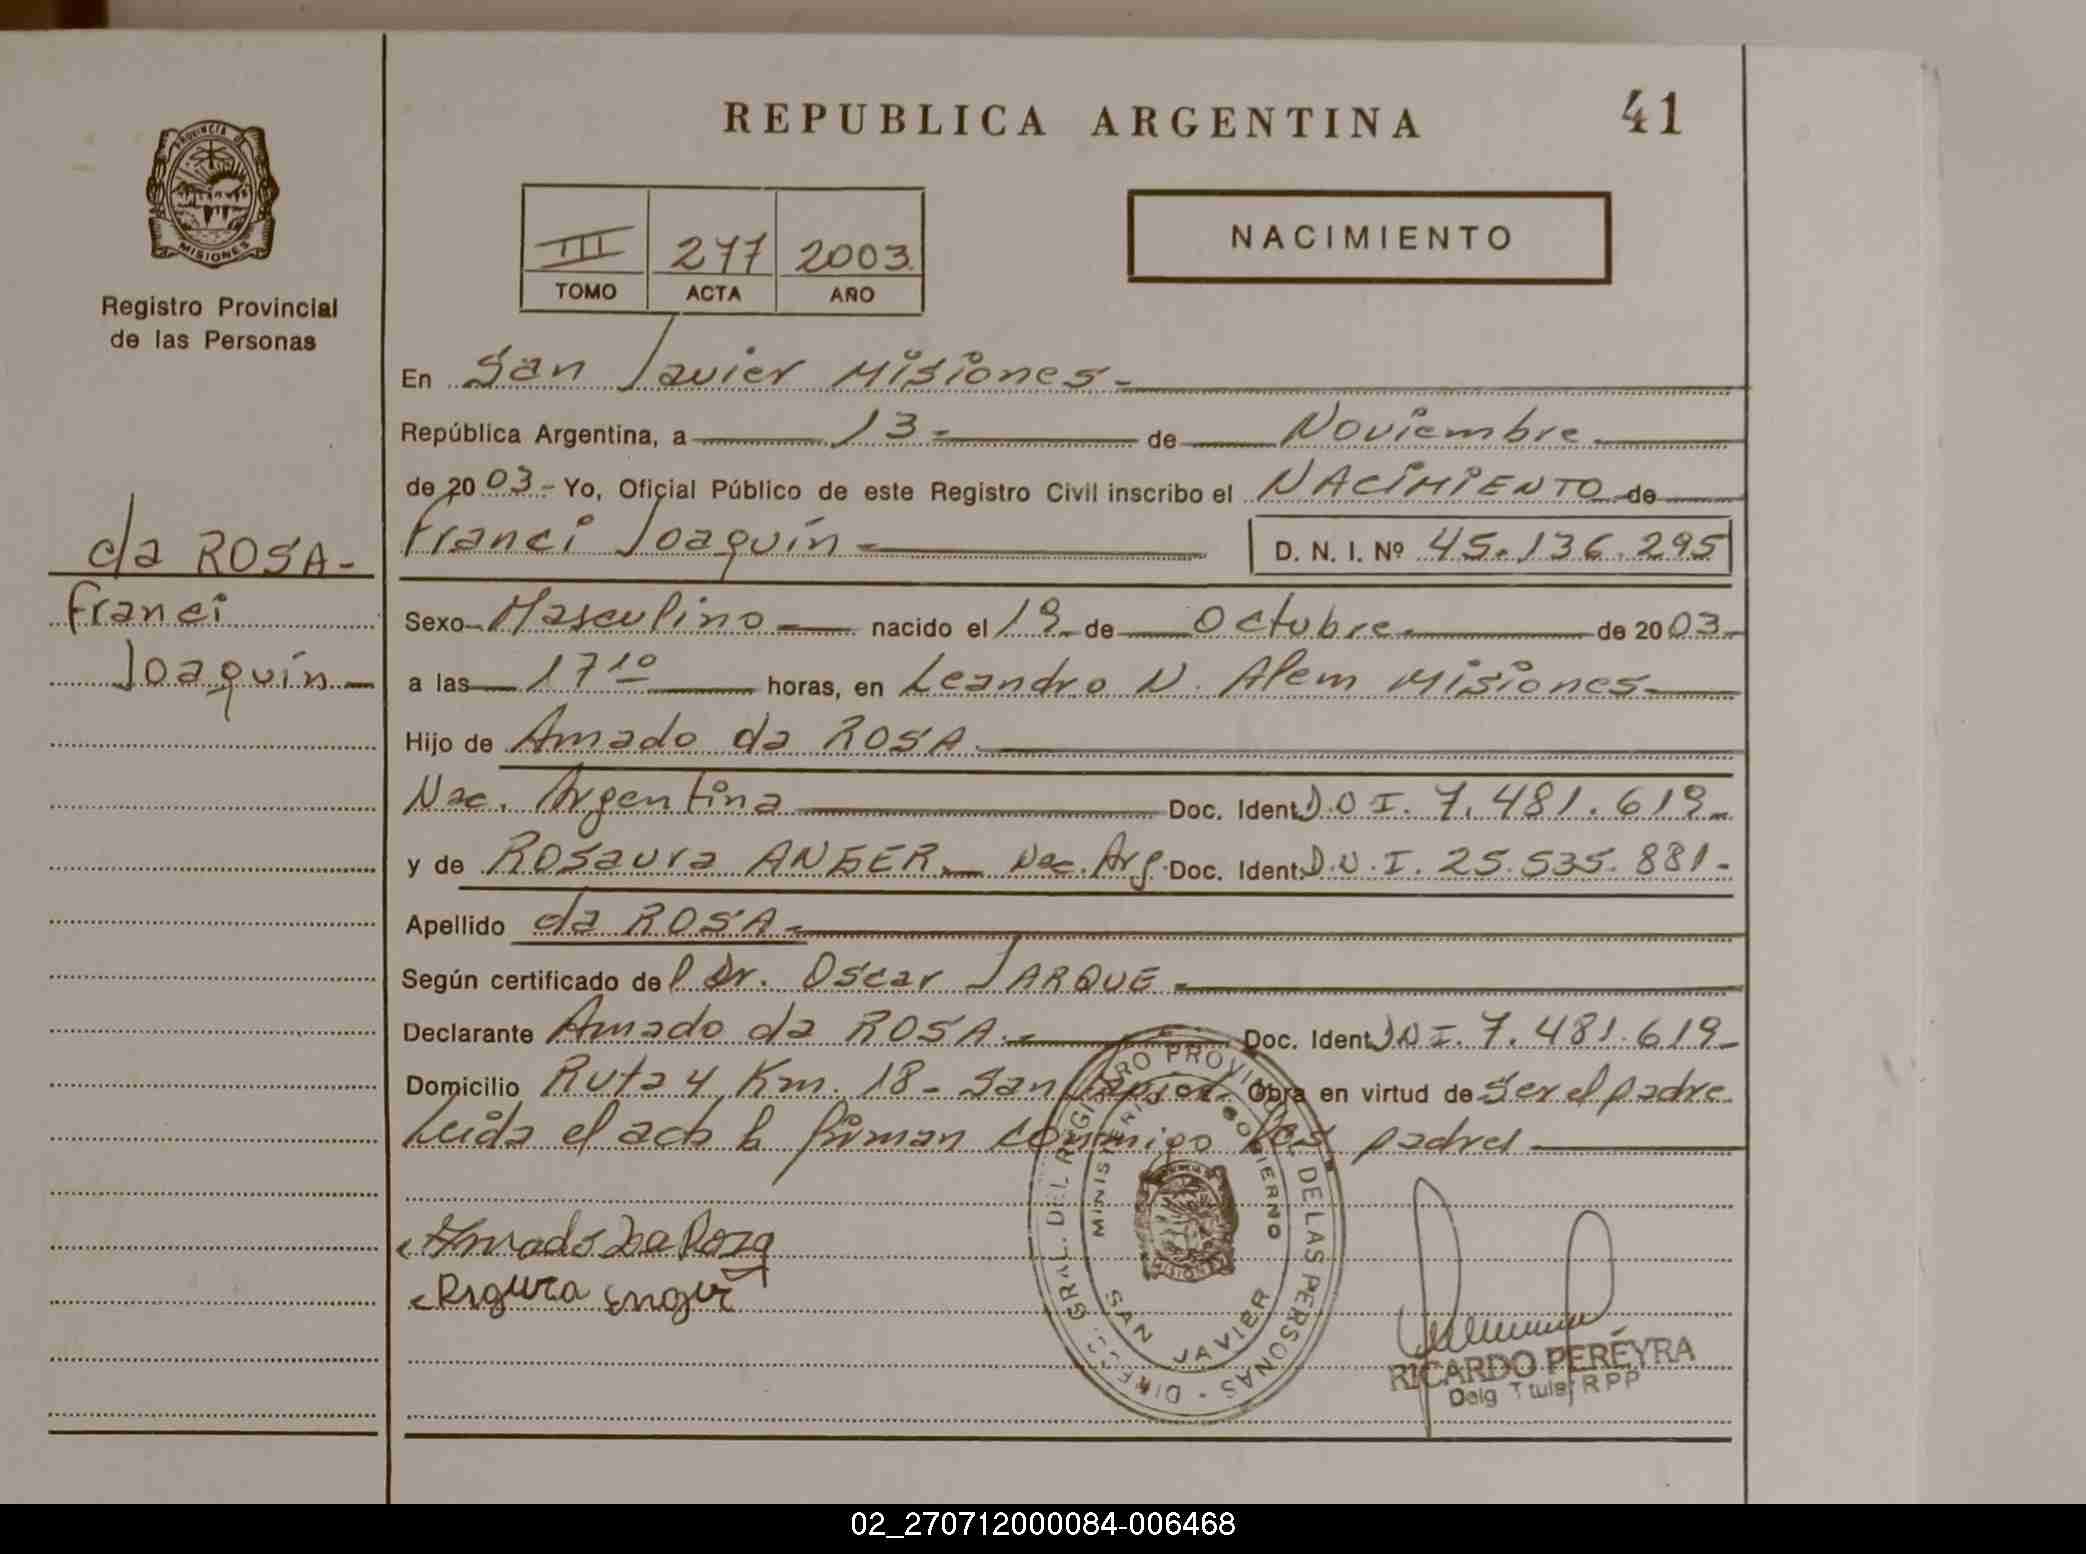 REPUBLICA ARGENTINA
41
PROVINCIA DE
MISIONES
Registro Provincial
de las Personas
III 277 2003
TOMO ACTA AÑO
NACIMIENTO
En San Javier Misiones.
República Argentina, a 13- de Noviembre
de 2003- Yo, Oficial Público de este Registro Civil inscribo el NACIMIENTO de
Franci Joaquín D. N. I. Nº 45.136.295
da ROSA-
Franci
Joaquín
Sexo Masculino nacido el 19 de Octubre de 2003
a las 17 10 horas, en Leandro N. Alem Misiones
Hijo de Amado da ROSA
Nac. Argentina Doc. Ident. D.N.I. 7.481.619
y de Rosaura ANGER Nac. Arg. Doc. Ident. D.N.I. 25.535.881-
Apellido da ROSA
Según certificado del Dr. Oscar JARQUE
Declarante Amado da ROSA Doc. Ident. DNI. 7.481.619
Domicilio Ruta 4 Km. 18- San Javier Obra en virtud de ser el padre
Leida el acta la firman conmigo los padres
Amado Da Roza
RICARDO PEREYRA
Delg Titular RPP
GRAL. DEL REGISTRO PROVINCIAL DE LAS PERSONAS
MINISTERIO GOBIERNO
MISIONES
SAN JAVIER
02_270712000084-006468